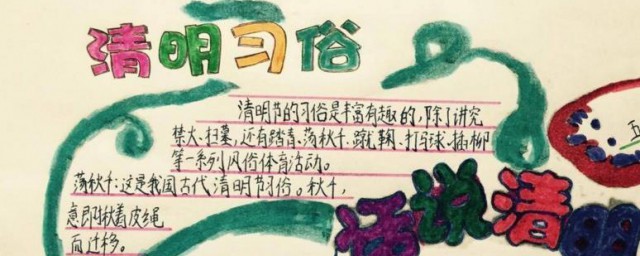 清明习俗
清明节的习俗是丰富有趣的,除了讲究
禁火、扫墓,还有踏青、荡秋千、蹴鞠、打马球、插柳
等一系列风俗体育活动。
荡秋千:这是我国古代清明节习俗。秋千,
意即揪着皮绳
而迁移。
话说清明